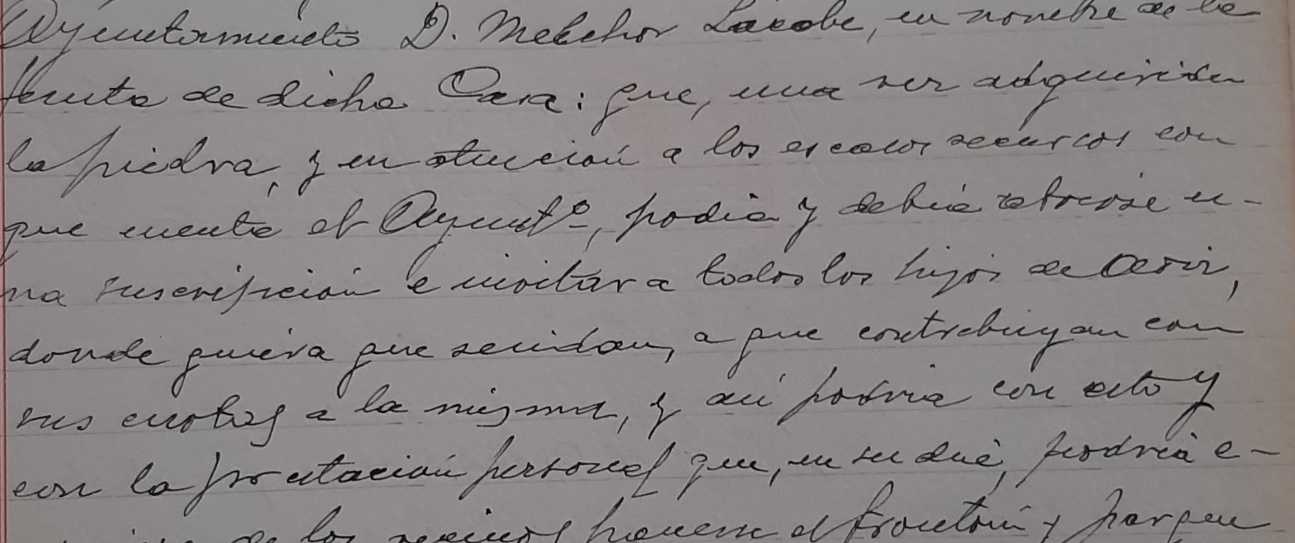 Ayuntamiento D. Melchor Lacabe, en nombre de la
Junta de dicha Casa: que, una vez adquirida
la piedra, y en atención a los escasos recursos con
que cuenta el Ayuntº, podía y debía abrirse u-
na suscripción e invitar a todos los hijos de
donde quiera que residan, a que contribuyan con
sus cuotas a la misma, y así podría con esto y
con la prestación personal que, en su día, podría e-
de los vecinos hacerse el frontón y